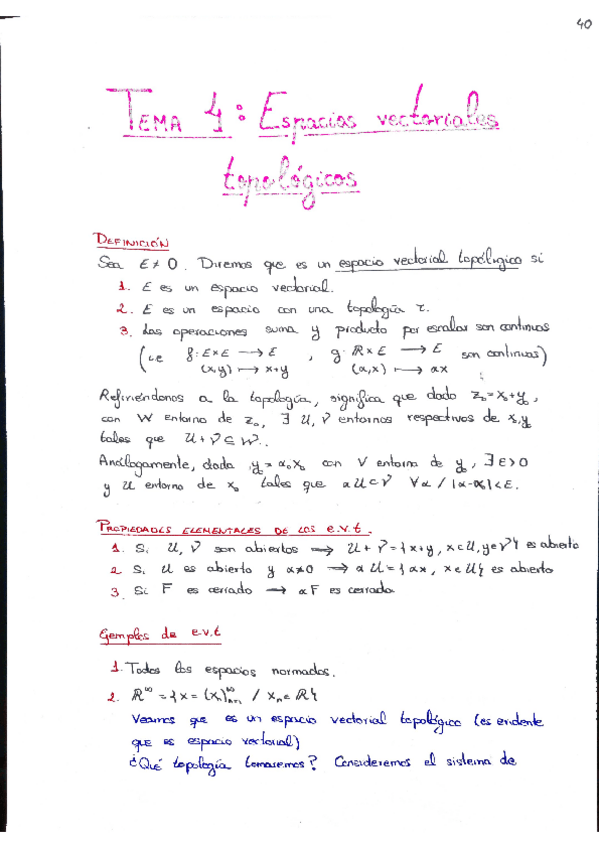 40
TEMA 4: Espacios vectoriales
topológicos
DEFINICIÓN
Sea E≠0. Diremos que es un espacio vectorial topológico si
1. E es un espacio vectorial.
2. E es un espacio con una topología τ.
3. Las operaciones suma y producto por escalar son continuas
(i.e f: E×E → E , g: R×E → E son continuas)
(x,y) ↦ x+y (α,x) ↦ αx
Refiriéndonos a la topología, significa que dado z₀=x₀+y₀,
con W entorno de z₀, ∃ U, V entornos respectivos de x₀,y₀
tales que U+V⊆W.
Análogamente, dada y₀=α₀x₀ con V entorno de y₀, ∃ε>0
y U entorno de x₀ tales que αU⊂V ∀α / |α-α₀|<ε.
PROPIEDADES ELEMENTALES DE LOS e.v.t.
1. Si U, V son abiertos ⟹ U+V={x+y, x∈U, y∈V} es abierto
2. Si U es abierto y α≠0 → αU={αx, x∈U} es abierto
3. Si F es cerrado → αF es cerrado
Ejemplos de e.v.t
1. Todos los espacios normados.
2. R^∞ = {x=(xₙ)ₙ₌₁^∞ / xₙ∈R}
Veamos que es un espacio vectorial topológico (es evidente
que es espacio vectorial)
¿Qué topología tomaremos? Consideremos el sistema de